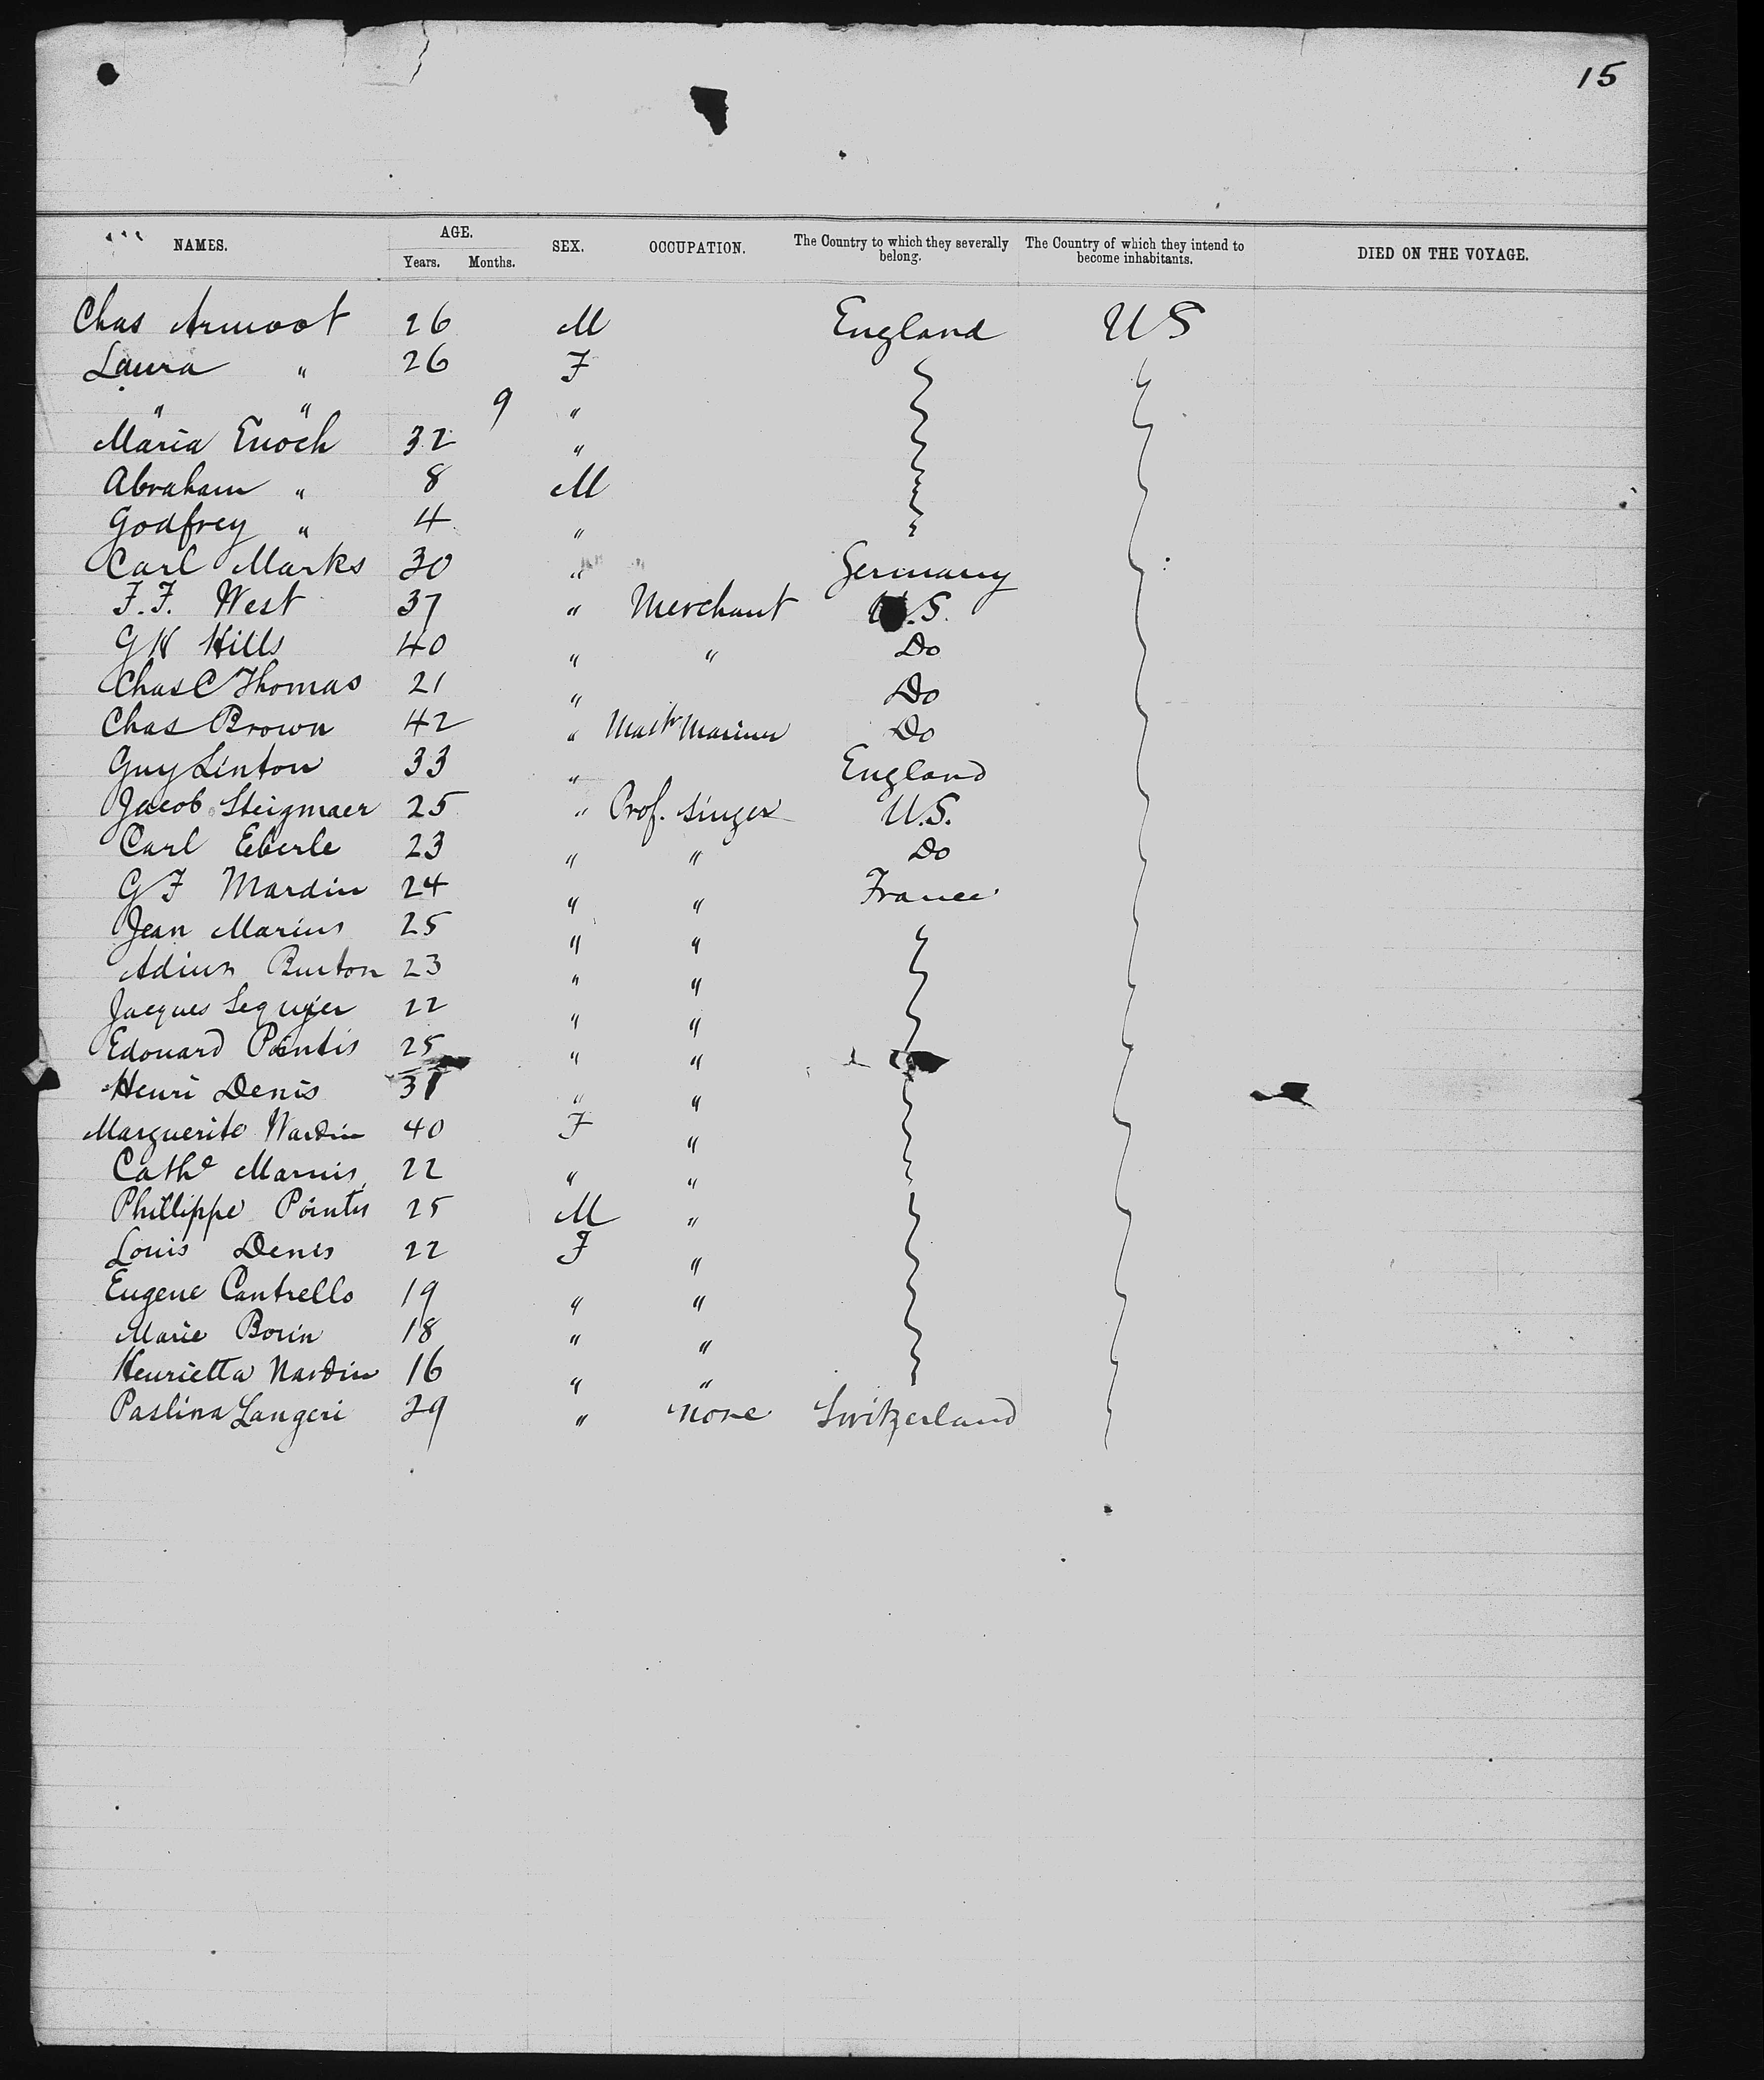 15
NAMES. AGE. Years. Months. SEX. OCCUPATION. The Country to which they severally belong. The Country of which they intend to become inhabitants. DIED ON THE VOYAGE.
Chas Armoot 26 M England U S
Laura " 26 F
" " 9 "
Maria Enoch 32 "
Abraham " 8 M
Godfrey " 4 "
Carl Marks 30 " Germany
F. F. West 37 " Merchant U.S.
G H Hills 40 " " Do
Chas C Thomas 21 " Do
Chas Brown 42 " Mastr Mariner Do
Guy Linton 33 " England
Jacob Steigmaer 25 " Prof. singer U.S.
Carl Eberle 23 " " Do
G F Mardin 24 " " France
Jean Marius 25 " "
Burton 23 " "
Jacques 22 " "
Edouard Pointis 25 " "
Henri Denis 31 " "
Marguerite Nardin 40 F "
Cathe 22 " "
Phillippe Pointis 25 M "
Louis Denis 22 F "
Eugene Cantrello 19 " "
Marie Borin 18 " "
Henrietta Nardin 16 " "
Paslina Langeri 29 " none Switzerland